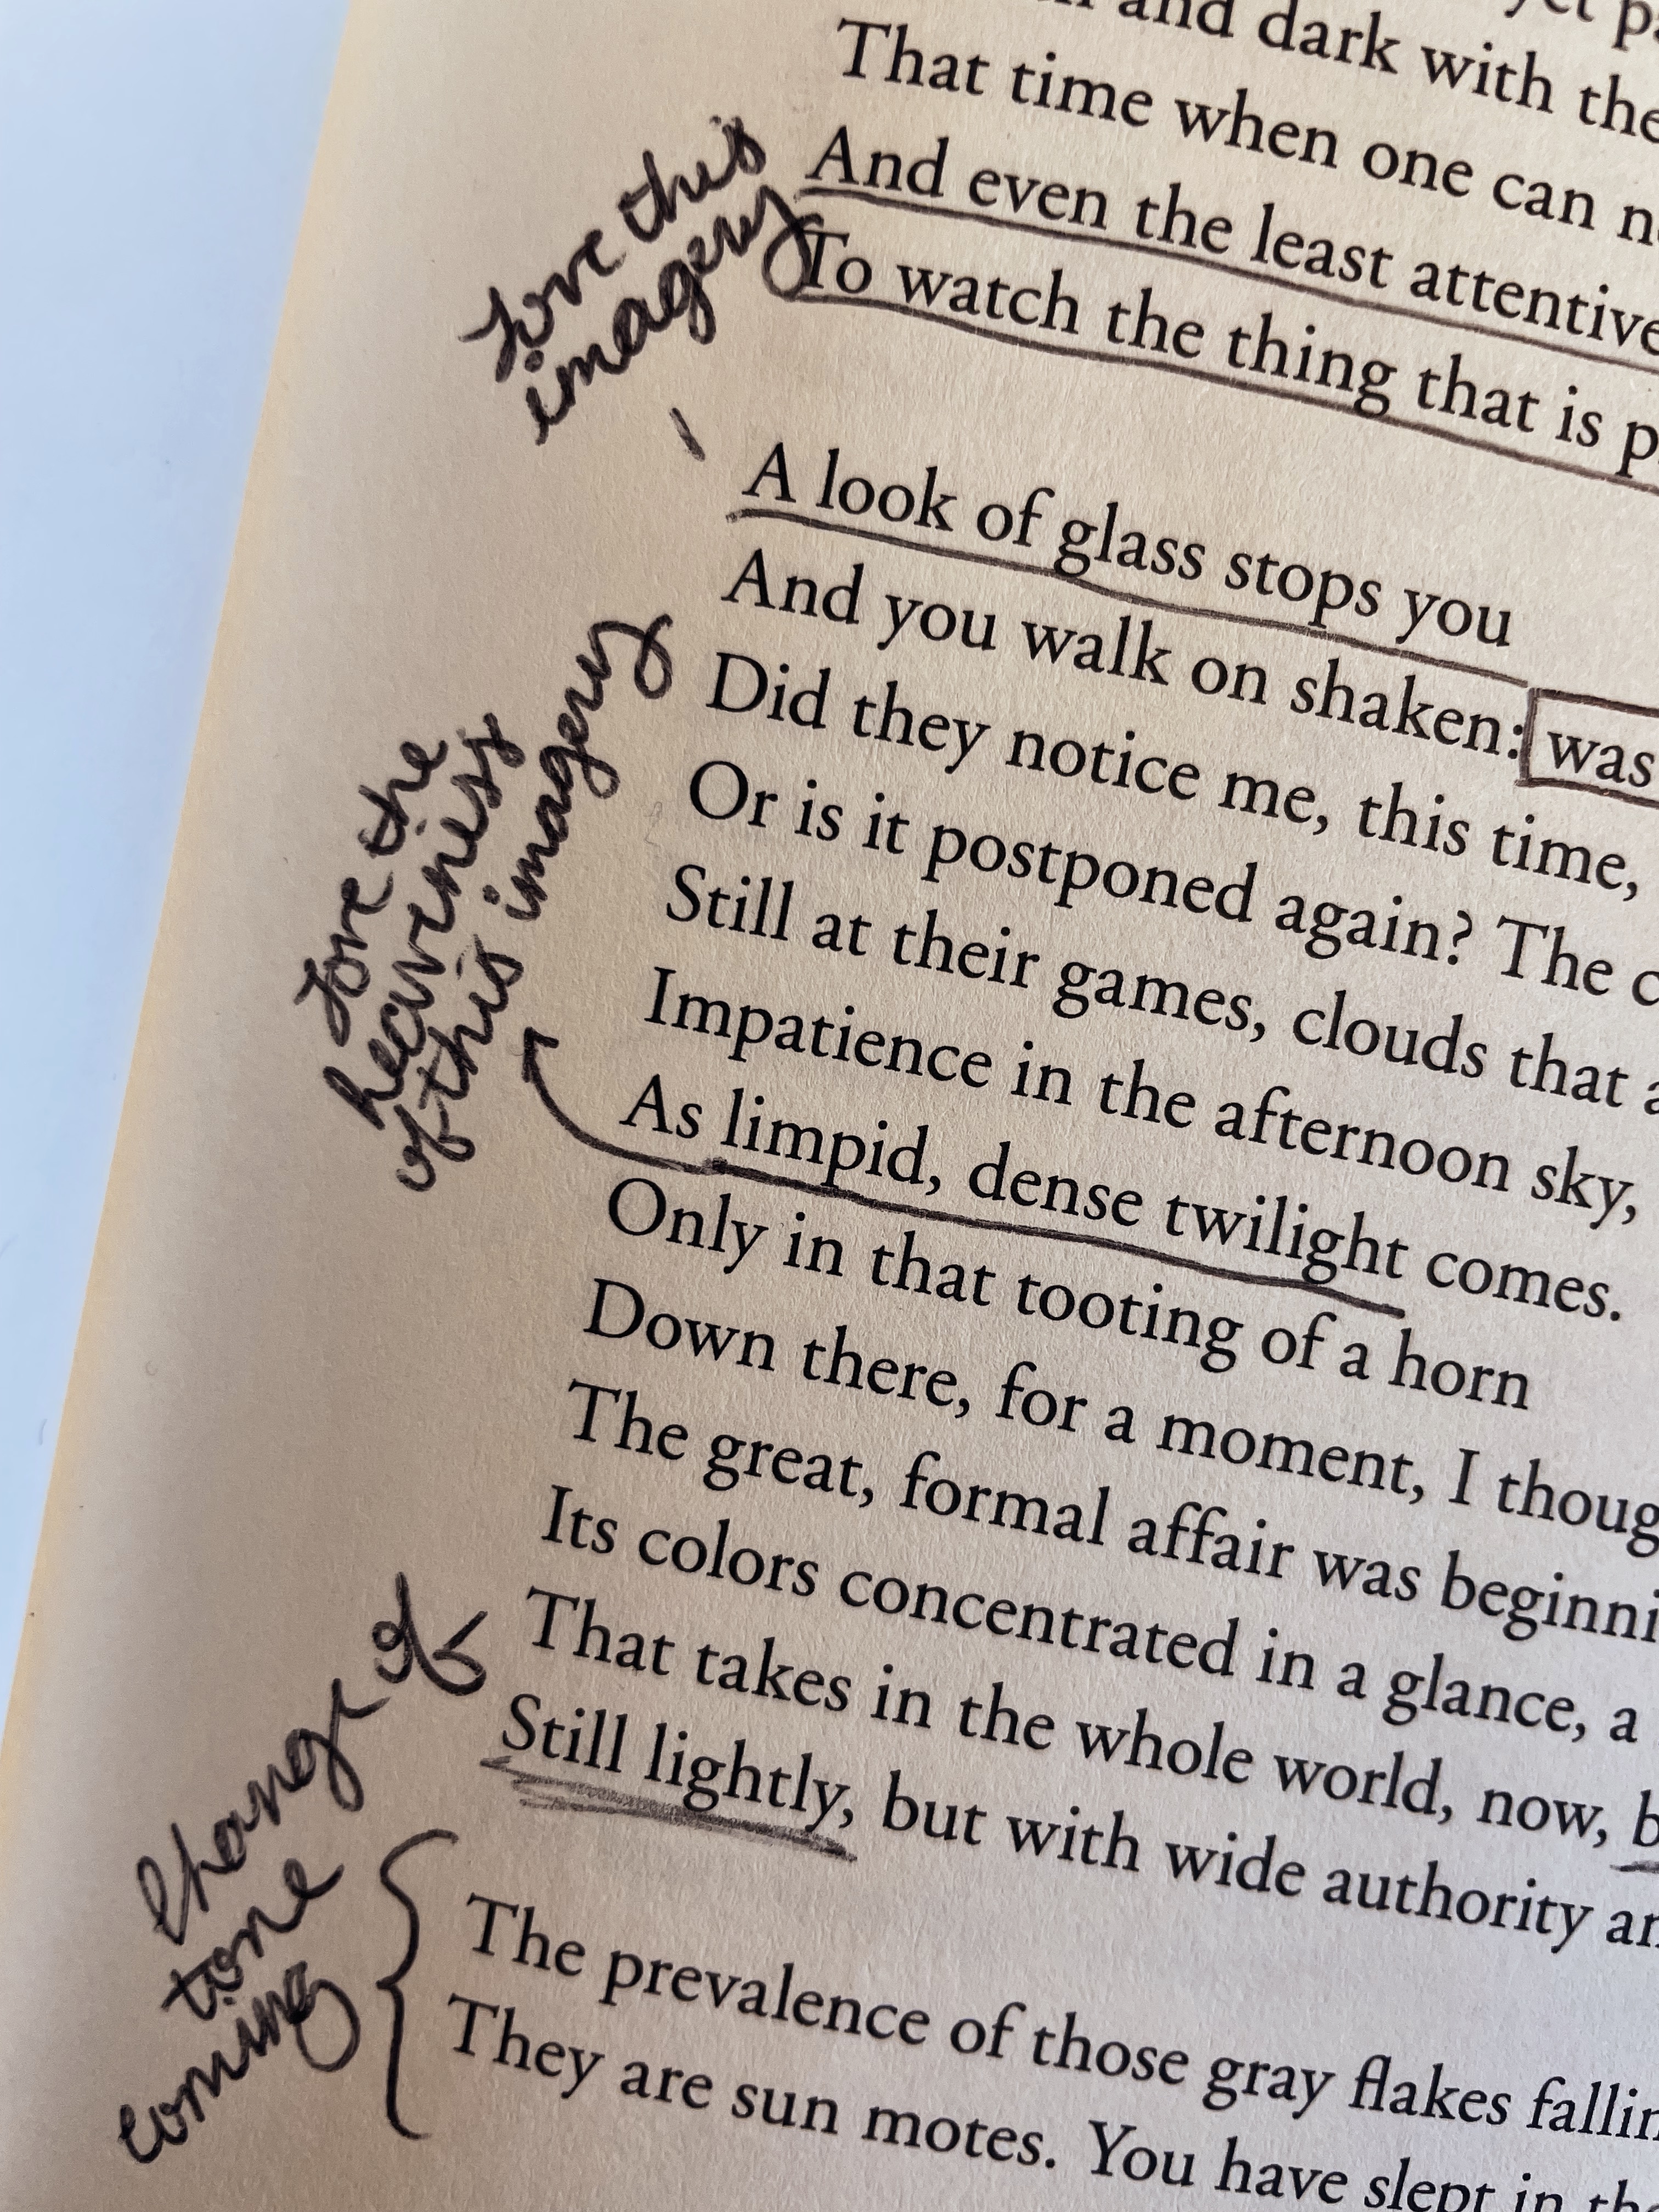 and dark with the
That time when one can
And even the least attentive
To watch the thing that is
Love this
imagery
A look of glass stops you
And you walk on shaken: was
Did they notice me, this time,
Or is it postponed again? The
Still at their games, clouds that
Impatience in the afternoon sky,
As limpid, dense twilight comes.
love the
heaviness
of this imagery
Only in that tooting of a horn
Down there, for a moment, I
The great, formal affair was
Its colors concentrated in a glance, a
That takes in the whole world, now,
Still lightly, but with wide authority
Change of
tone
coming
The prevalence of those gray flakes
They are sun motes. You have slept in